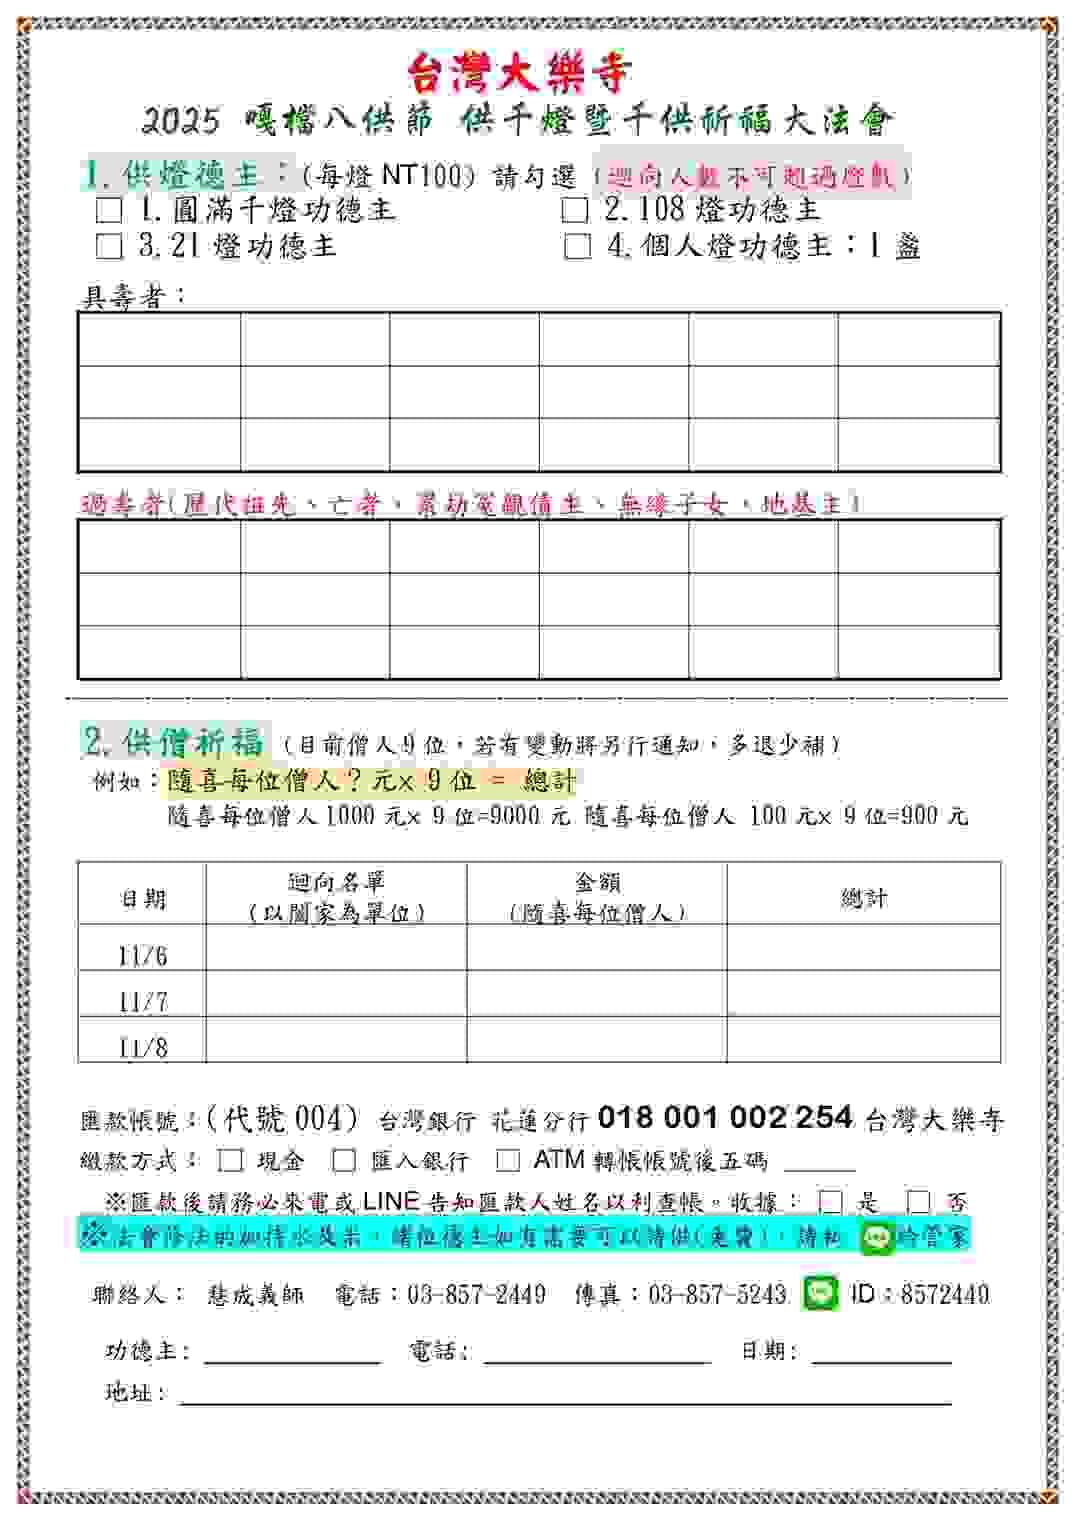 台灣大樂寺
2025 嘎檔八供節 供千燈暨千供祈福大法會
1. 供燈德主：(每燈 NT100) 請勾選 (迴向人數不可超過燈數)
□ 1. 圓滿千燈功德主 □ 2. 108 燈功德主
□ 3. 21 燈功德主 □ 4. 個人燈功德主：1 盞
具壽者：
過壽者(歷代祖先、亡者、累劫冤親債主、無緣子女、地基主)
2. 供僧祈福 (目前僧人 9 位，若有變動將另行通知，多退少補)
例如：隨喜每位僧人？元x 9 位 = 總計
隨喜每位僧人 1000 元x 9 位=9000 元 隨喜每位僧人 100 元x 9 位=900 元
日期 迴向名單 金額 總計
(以闔家為單位) (隨喜每位僧人)
11/6
11/7
11/8
匯款帳號：(代號 004) 台灣銀行 花蓮分行 018 001 002 254 台灣大樂寺
繳款方式： □ 現金 □ 匯入銀行 □ ATM 轉帳帳號後五碼
※匯款後請務必來電或 LINE 告知匯款人姓名以利查帳。收據： □ 是 □ 否
※法會修法的加持水及米，諸位德主如有需要可以請供(免費)，請私 LINE 給管家
聯絡人： 慈成義師 電話：03-857-2449 傳真：03-857-5243 LINE ID：8572449
功德主: 電話: 日期:
地址: